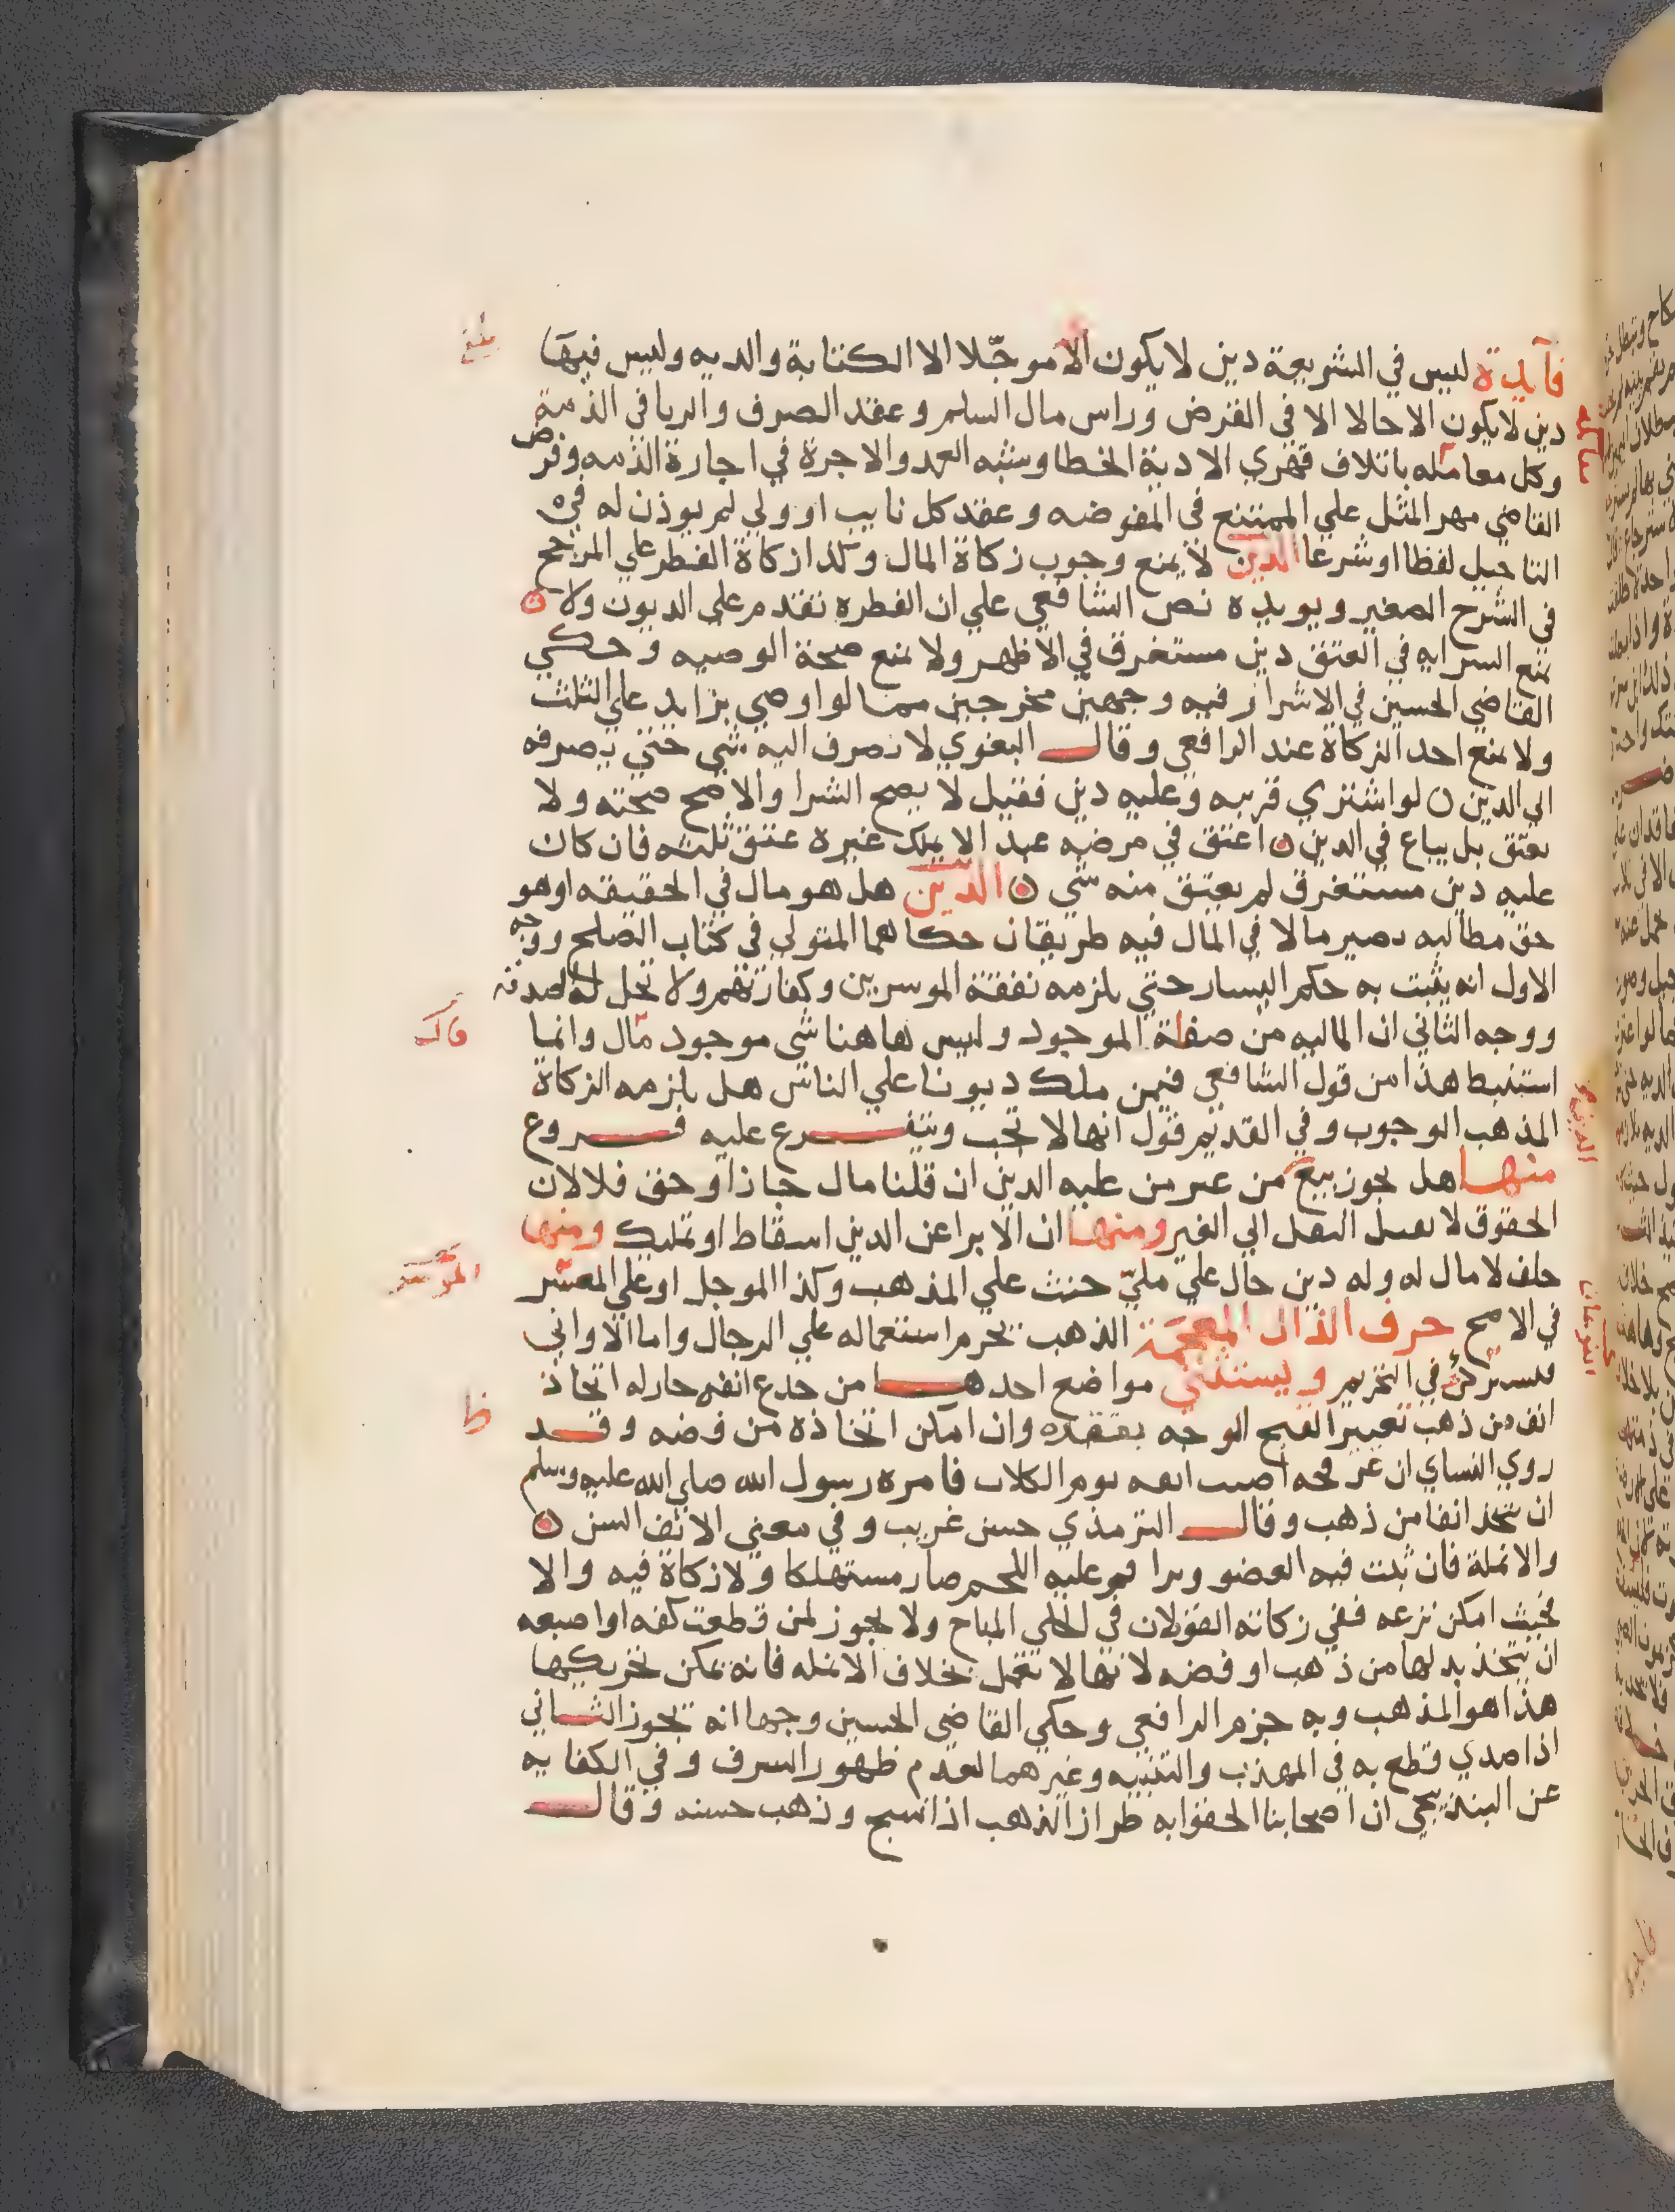 فآيدة ليس في الشريعة دين لا يكون الا موجّلا الا الكتابة والديه وليس فيها
دين لا يكون الا حالا الا في القرض وراس مال السلم وعقد الصرف والربا في الذمة
وكل معامله باتلاف قهري الا دية الخطا وشبه العمد والاجرة في اجارة الذمه وفرض
القاضي مهر المثل علي الممتنع في المفوضه وعقد كل نايب او ولي لم يوذن له في
التاجيل لفظا او شرعا الدين لا يمنع وجوب زكاة المال وكذا زكاة الفطر علي المرجح
في الشرح الصغير ويويده نص الشافعي علي ان الفطره تقدم علي الديون ولا
يمنع السرايه في العتق دين مستغرق في الاظهر ولا يمنع صحة الوصيه وحكي
القاضي الحسين في الاشرار فيه وجهين مخرجين مما لو اوصي بزايد علي الثلث
ولا يمنع احد الزكاة عند الرافعي وقال البغوي لا تصرف اليه شي حتي يصرفه
الي الدين ن لو اشتري قريبه وعليه دين فقيل لا يصح الشرا والاصح صحته ولا
يعتق بل يباع في الدين ن اعتق في مرضه عبدا لا يملك غيره عتق ثلثه فان كان
عليه دين مستغرق لم يعتق منه شي ن الدين هل هو مال في الحقيقه او هو
حق مطالبه يصير مالا في المال فيه طريقان حكاهما المتولي في كتاب الصلح ووجه
الاول انه يثبت به حكم اليسار حتي يلزمه نفقة الموسرين وكفارتهم ولا تحل له الصدقه
ووجه الثاني ان الماليه من صفلة الموجود وليس هاهنا شي موجود مال وانما
استنبط هذا من قول الشافعي فيمن ملك ديونا علي الناس هل يلزمه الزكاة
المذهب الوجوب وفي القديم قول انها لا تجب ويتفرع عليه فروع
منها هل يجوز بيع من غير من عليه الدين ان قلنا مال جاز او حق فلا لان
الحقوق لا تقبل النقل الي الغير ومنها ان الابرا عن الدين اسقاط او تمليك ومنها
حلف لا مال له وله دين حال علي مليّ حنث علي المذهب وكذا الموجل او علي المعسر
في الاصح حرف الذال المعجمة الذهب يحرم استعماله علي الرجال واما الاواني
فيشترك في التحريم ويستثني مواضع احدها من جدع انفه جاز له اتخاذ
انف من ذهب تعبير القبح الوجه بفقده وان امكن اتخاذه من فضه وقد
روي النساي ان عرفجه اصيب انفه يوم الكلاب فامره رسول الله صلي الله عليه وسلم
ان يتخذ انفا من ذهب وقال الترمذي حسن غريب وفي معني الانف السن ن
والانملة فان ثبت فيه العضو وبرا عليه اللحم صار مستهلكا ولا زكاة فيه والا
فحيث امكن نزعه ففي زكاته القولان في الحلي المباح ولا يجوز لمن قطعت كفه او اصبعه
ان يتخذ بدلها من ذهب او فضه لانها لا تعمل بخلاف الانمله فانه يمكن تحريكها
هذا هو المذهب وبه جزم الرافعي وحكي القاضي الحسين وجها انه يجوز الثاني
اذا صدي قطع به في المهذب والتنبيه وغيرهما لعدم ظهور السرف وفي الكفايه
عن البندنيجي ان اصحابنا الحقوا به طراز الذهب اذا نسج وذهب حسنه وقال
بلغ
قال
الموسر
ظ